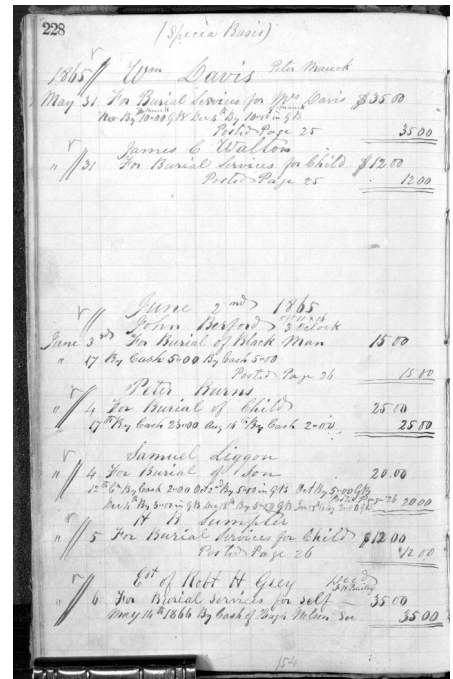 228
(Specia Basis)
1865 // Wm Davis Peter Mauck
May 31 For Burial Services for Mrs Davis $35.00
Nov By 10.00 GB Dec By 10.00 in GB
Posted Page 25 35.00
James C Walton
" // 31 For Burial Services for Child $12.00
Posted Page 25 12.00
June 2nd 1865
John Berford 3 Oclock
June 3rd For Burial of Black Man 15.00
" 17 By Cash 5.00 By Cash 5.00
Posted Page 26 15.00
Peter Burns
" // 4 For Burial of Child 25.00
17th By Cash 23.00 Aug 16th By Cash 2.00 25.00
Samuel Liggon
" // 4 For Burial of Son 20.00
12th By Cash 2.00 Oct 2nd By 5.00 in GB Oct By 5.00 GB
Posted Page 26
Dec By 5.00 in GB By 5.00 GB By 2.00 GB 20.00
H B Sumpter
" // 5 For Burial Services for Child $12.00
Posted Page 26 12.00
Est of Robt H Grey
" // 6 For Burial Services for self 35.00
May 14th 1866 By Cash of Hugh Nelson 35.00
154